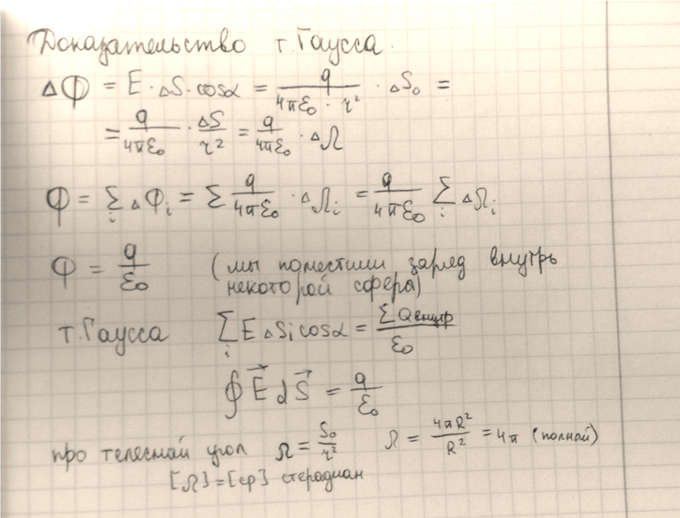 Доказательство т. Гаусса.
ΔΦ = E · ΔS · cosα = q / (4πε₀ · r²) · ΔS₀ =
= q / (4πε₀) · ΔS / r² = q / (4πε₀) · ΔΩ
Φ = Σᵢ ΔΦᵢ = Σ q / (4πε₀) · ΔΩᵢ = q / (4πε₀) Σᵢ ΔΩᵢ
Φ = q / ε₀ (мы поместили заряд внутрь
некоторой сферы)
т. Гаусса Σᵢ E ΔSᵢ cosα = ΣQвнутр / ε₀
∮ E⃗ dS⃗ = q / ε₀
про телесный угол Ω = S₀ / r² Ω = 4πR² / R² = 4π (полный)
[Ω] = [ср] стерадиан